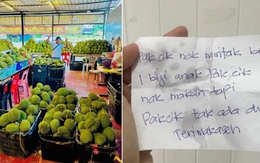 Pakcik nak mintak be
1 biji anak Pakcik
nak makan tapi
Pakcik tak ada du
Terimakaseh